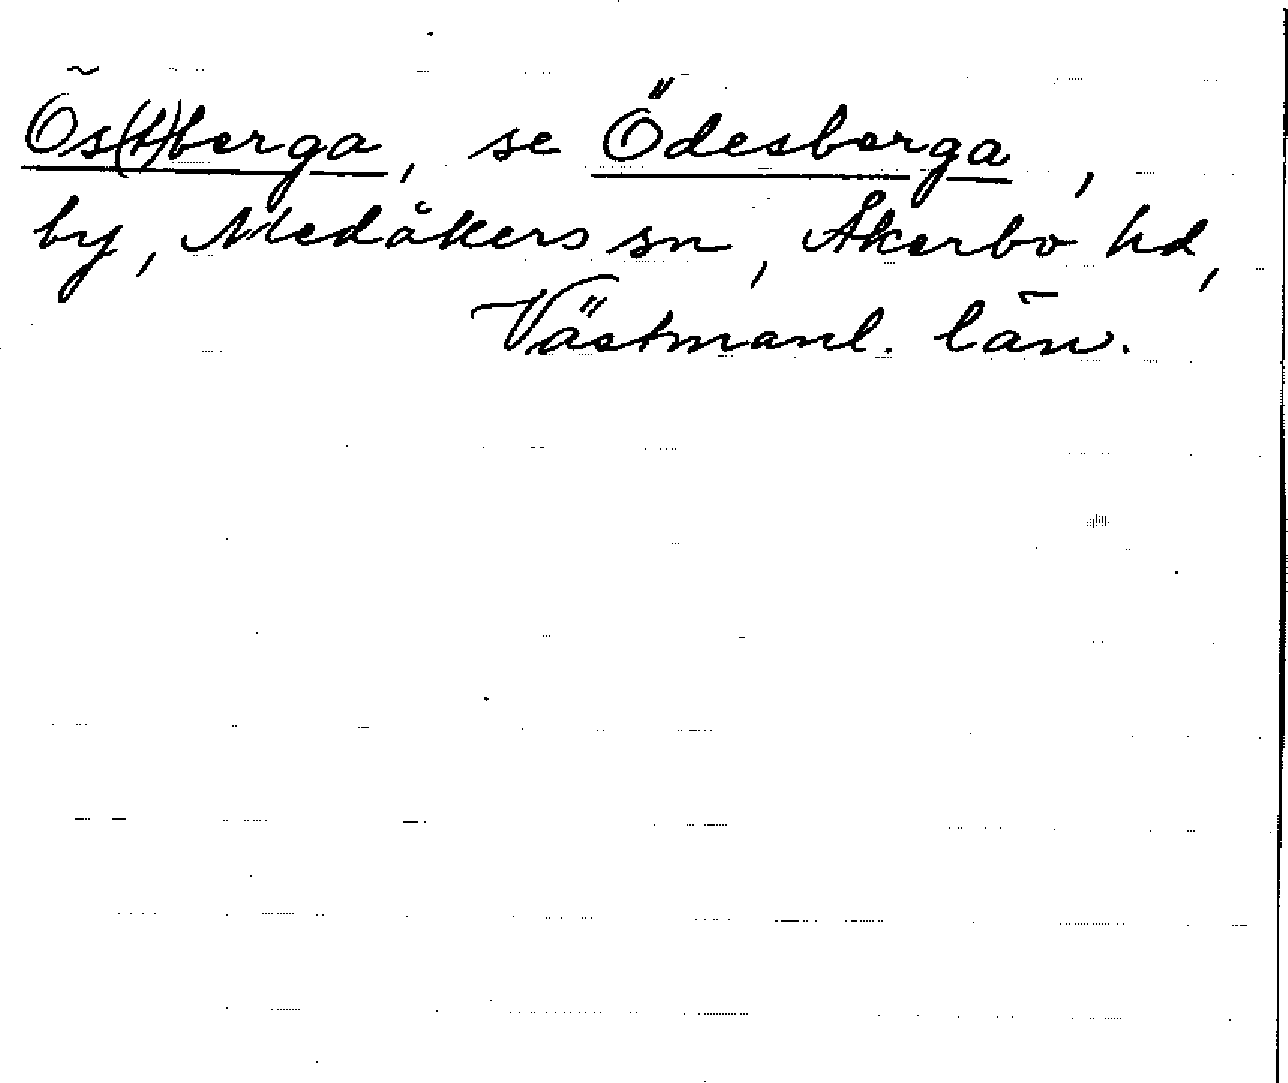 Ös(t)berga, se Ödesberga,
by, Medåkers sn, Åkerbo hd,
Västmanl. län.